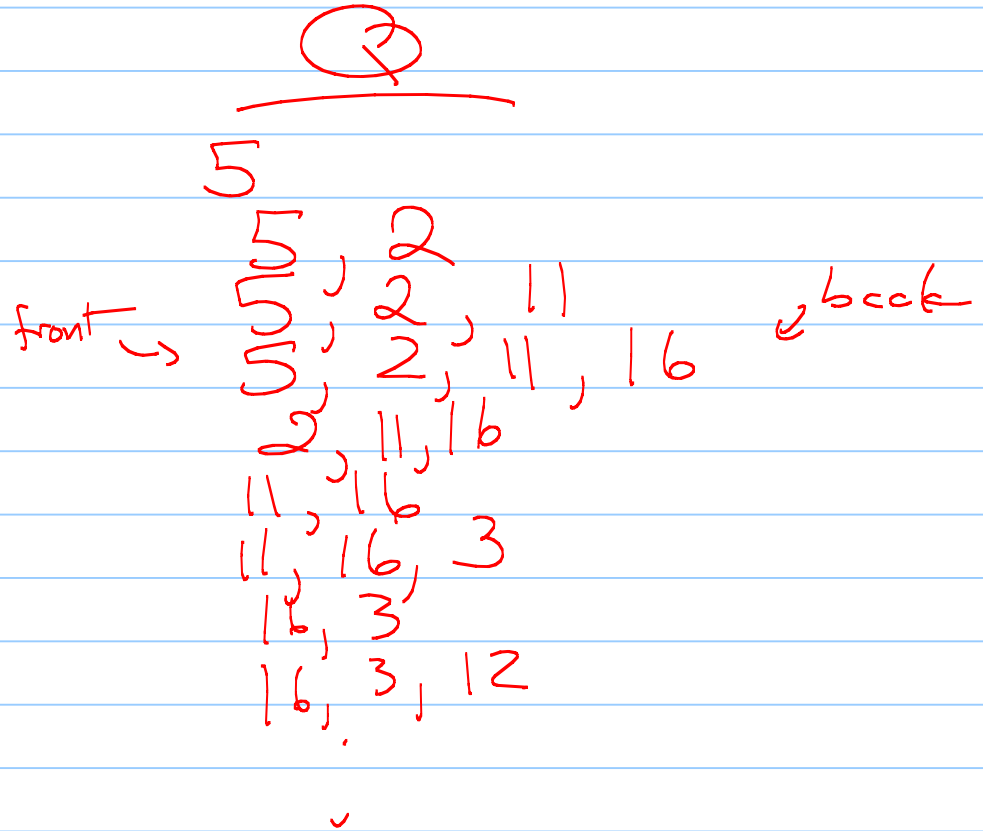 Q
5
5, 2
5, 2, 11
front → 5, 2, 11, 16 ↙ back
2, 11, 16
11, 16
11, 16, 3
16, 3
16, 3, 12